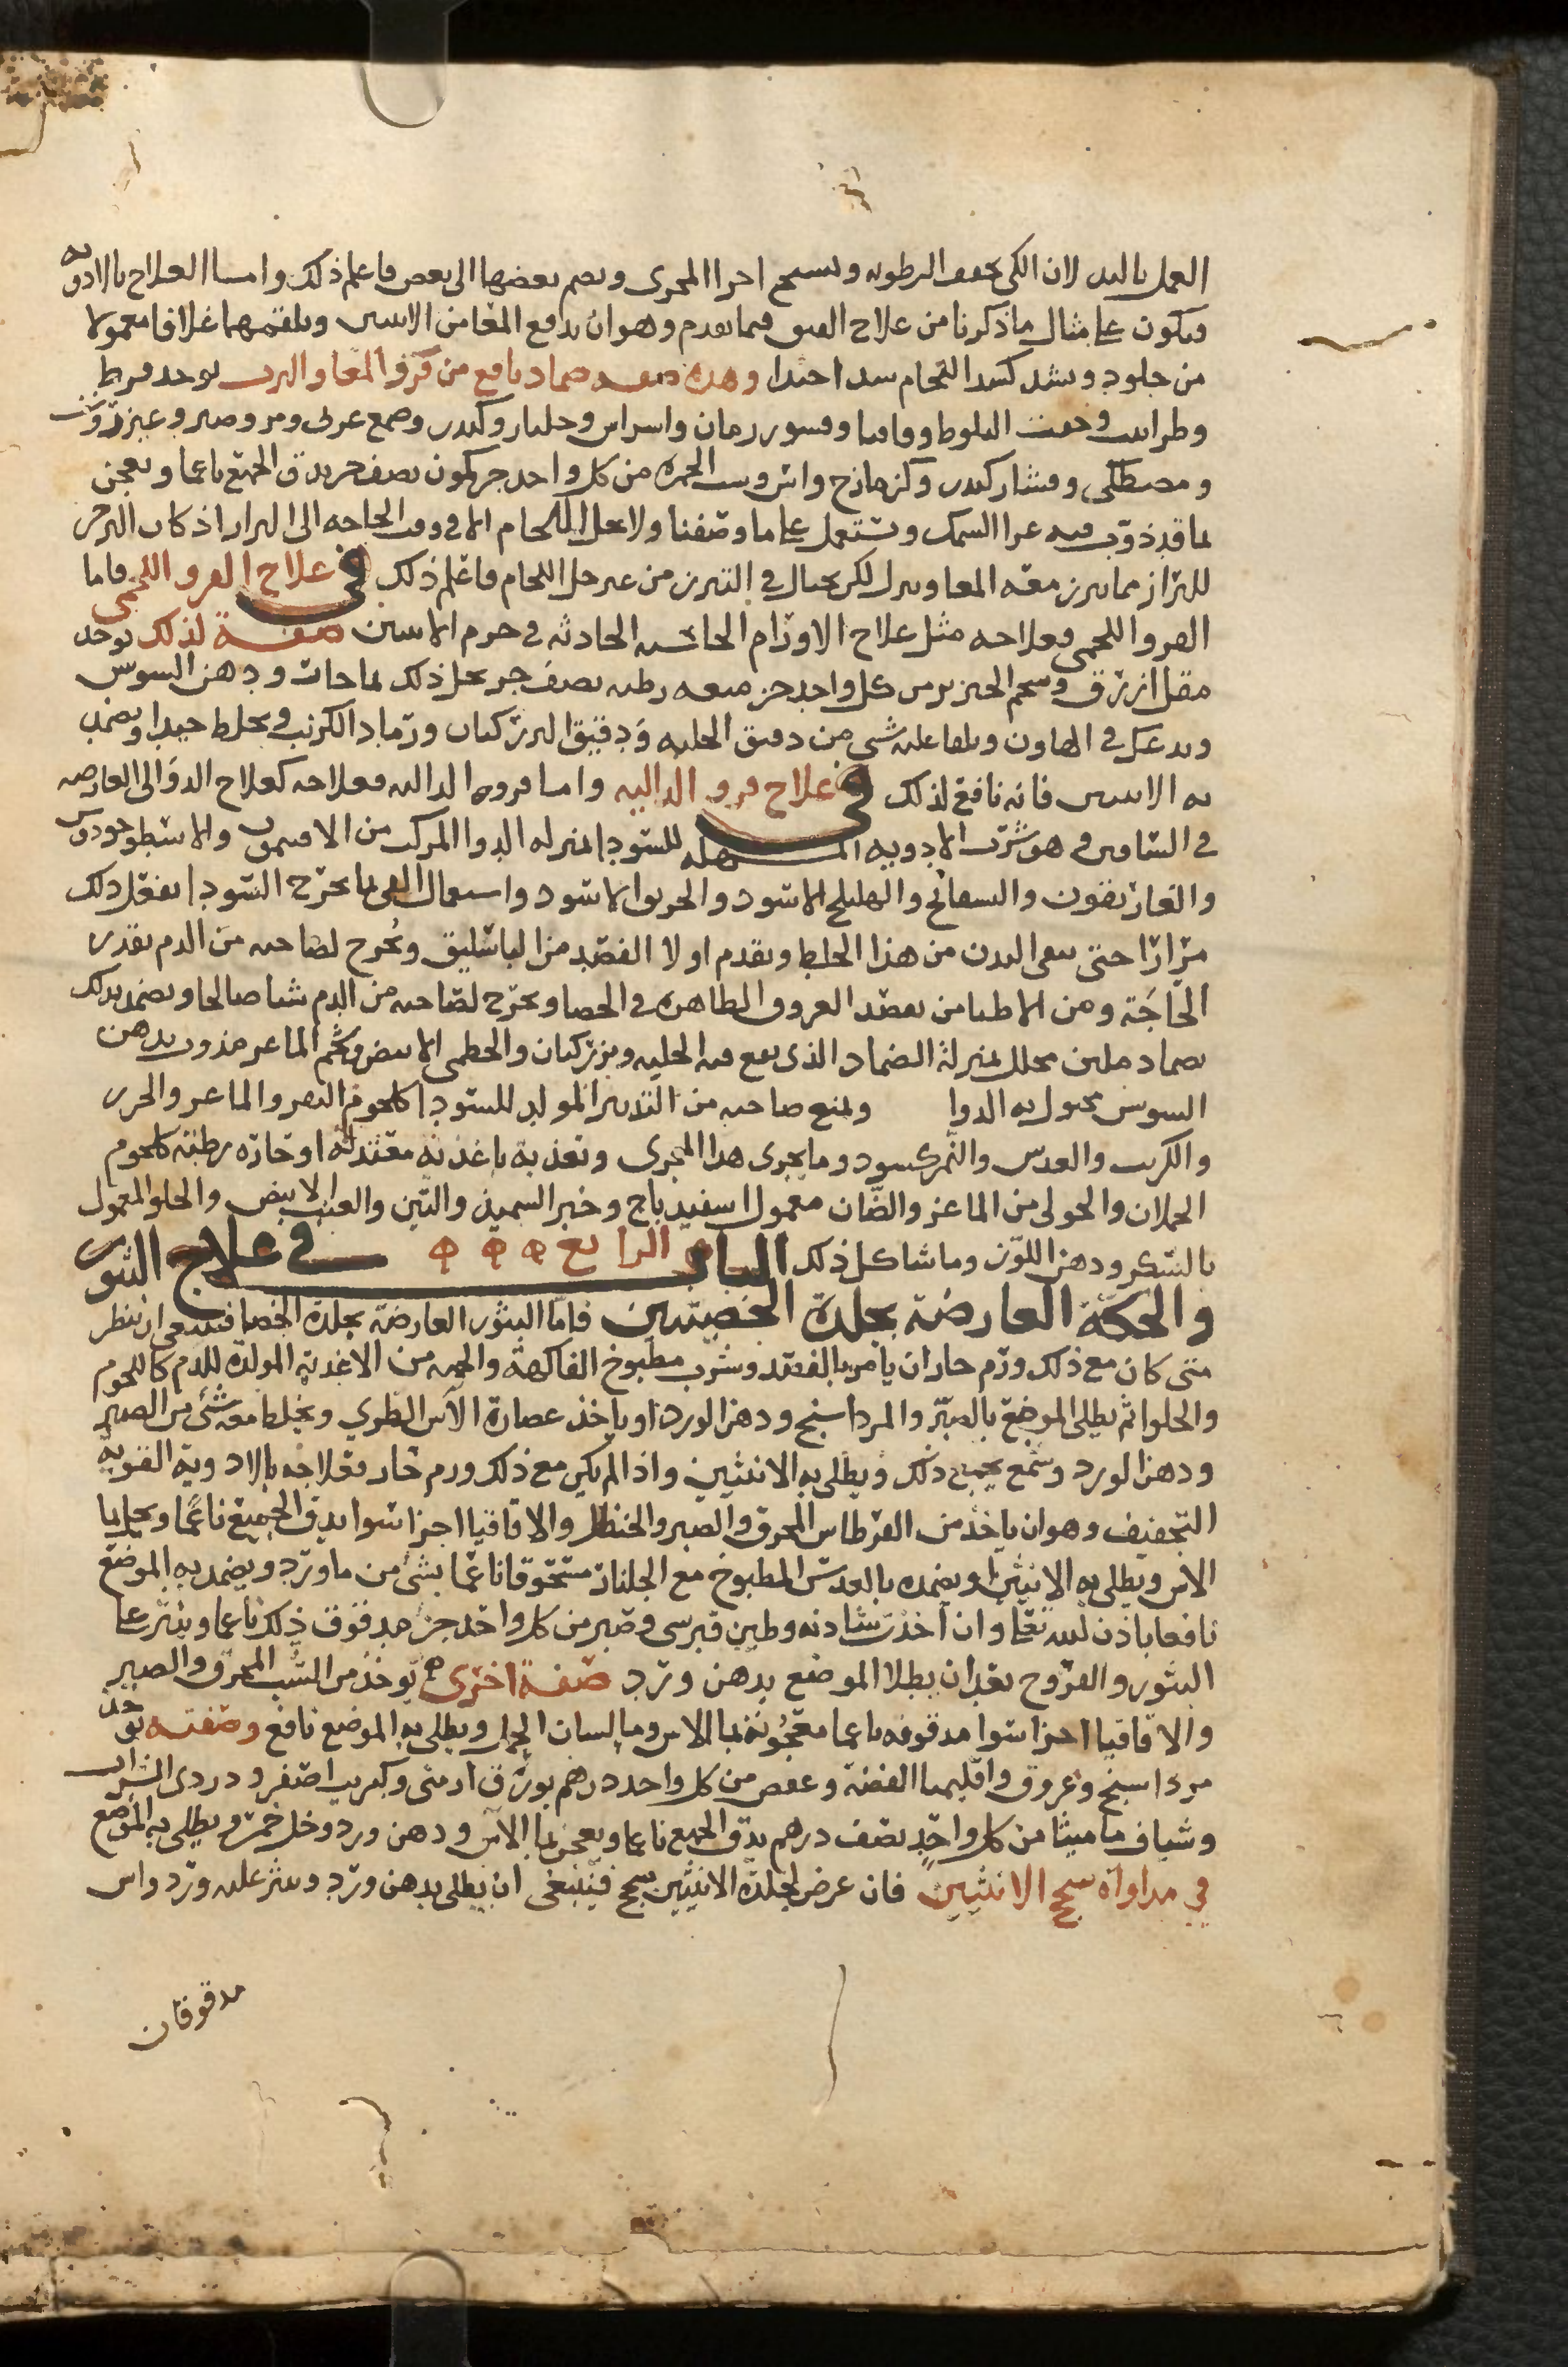 العمل باليد لان الكي يجفف الرطوبه ويسخن اجزا المجرى ويضم بعضها الى بعض فاعلم ذلك واما العلاج بالادويه
فيكون على مثال ما ذكرنا من علاج الفتق فيما تقدم وهو ان يدفع المعا من الانثيين ويلقمهما غلافا معمولا
من جلود ويشد كشد اللجام شدا جيدا وهذه صفه ضماد نافع من قرو المعا والثرب يوخذ قرط
وطراثيث وجفت البلوط وقاقيا وقشور رمان واسراس وجلنار وكندر وصمغ عربي ومر وصبر وعنزروت
ومصطكى وقشار كندر وكزمازج واشق وشب الحمره من كل واحد جز كمون نصف جز يدق الجميع ناعما ويعجن
بما قد ذوب فيه غرا السمك ويستعمل على ما وصفنا ولا يحل اللجام الا في وقت الحاجه الى البراز اذ كان التزحر
للبراز مما يبرز معه المعا وينزل لكن يحتال في التبرز من غير حل اللجام فاعلم ذلك في علاج القرو اللحمي فاما
القرو اللحمي فعلاجه مثل علاج الاورام الجاسيه الحادثه في جرم الانثيين صفة لذلك يوخذ
مقل ازرق وشحم الخنزير من كل واحد جز ميعه رطبه نصف جز يحل ذلك بما حاث ودهن السوس
ويدعك في الهاون ويلقا عليه شي من دقيق الحلبه ودقيق البزركتان ورماد الكرنب ويخلط جيدا ويضمد
به الانثيين فانه نافع لذلك في علاج قرو الداليه واما قروه الداليه فعلاجه كعلاج الدوالى العارضه
في الساقين وهو شرب الادويه المسهله للسودا بمنزله الدوا المركب من الافتيمون والاسطوخودوس
والغاريقون والبسفائج والهليلج الاسود والخربق الاسود واستعمال القي بما يخرج السودا يفعل ذلك
مرارا حتى ينقى البدن من هذا الخلط ويقدم اولا الفصد من الباسليق ويُخرج لصاحبه من الدم بقدر
الحاجَة ومن الاطبا من يفصد العروق الظاهره في الخصا ويخرج لصاحبه من الدم شيا صالحا ويضمد بذلك
بضماد ملين محلل بمنزلة الضماد الذى يقع فيه الحلبه وبزركتان والخطمى الابيض وشحم الماعز مذوب بدهن
السوس محلول به الدوا ويمنع صاحبه من التدبير المولد للسودا كلحوم البقر والماعز والجزر
والكرنب والعدس والنمكسود وما يجرى هذا المجرى وتغذيه باغذيه معتدلة او حاره رطبه كلحوم
الحملان والحولى من الماعز والضان معمول اسفيدباج وخبز السميذ والتين والعنب الابيض والحلو المعمول
بالسكر ودهن اللوز وما شاكل ذلك الباب الرابع في علاج البثور
والحكة العارضة بجلدة الخصيتين فاما البثور العارضة بجلدة الخصا فينبغى ان ينظر
متى كان مع ذلك ورم حار ان يامر بالفصد وشرب مطبوخ الفاكهة والحميه من الاغديه المولدة للدم كاللحوم
والحلوا ثم يطلى الموضع بالصبر والمرداسنج ودهن الورد او ياخذ عصارة الآس الطرى ويخلط معه شئ من الصبر
ودهن الورد وشمع يجمع ذلك ويطلى به الانثيين واذا لم يكن مع ذلك ورم حار فعلاجه بالادويه القويه
التجفيف وهو ان ياخذ من القرطاس المحرق والصبر والحنظل والاقاقيا اجزا سوا يدق الجميع ناعمًا ويحل بما
الاس ويطلى به الانثيين ويضمده بالعدس المطبوخ مع الجلنار مسحوقا ناعما بشئ من ماورد ويضمد به الموضع
نافعا باذن لله تعا وان اخذت شادنه وطين قبرسى وصبر من كل واحد جز مدقوق ذلك ناعما وينثر على
البثور والقروح بعد ان يطلا الموضع بدهن ورد صفة اخرى يوخذ من الشب المحرق والصبر
والاقاقيا اجزا سوا مدقوقه ناعما معجونه بما الاس وما لسان الحمل ويطلى به الموضع نافع وصفته يوخذ
مرداسنج وعروق واقليميا الفضة وعفص من كل واحد درهم بورق ارمنى وكبريت اصفر ودردى الشراب
وشياف ماميثا من كل واحد نصف درهم يدق الجميع ناعما ويعجن بما الآس ودهن ورد وخل خمر ويطلى به الموضع
في مداواة سحج الانثيين فان عرض لجلدة الانثيين سحج فينبغى ان يطلى بدهن ورد وينثر عليه ورد واس
مدقوقان